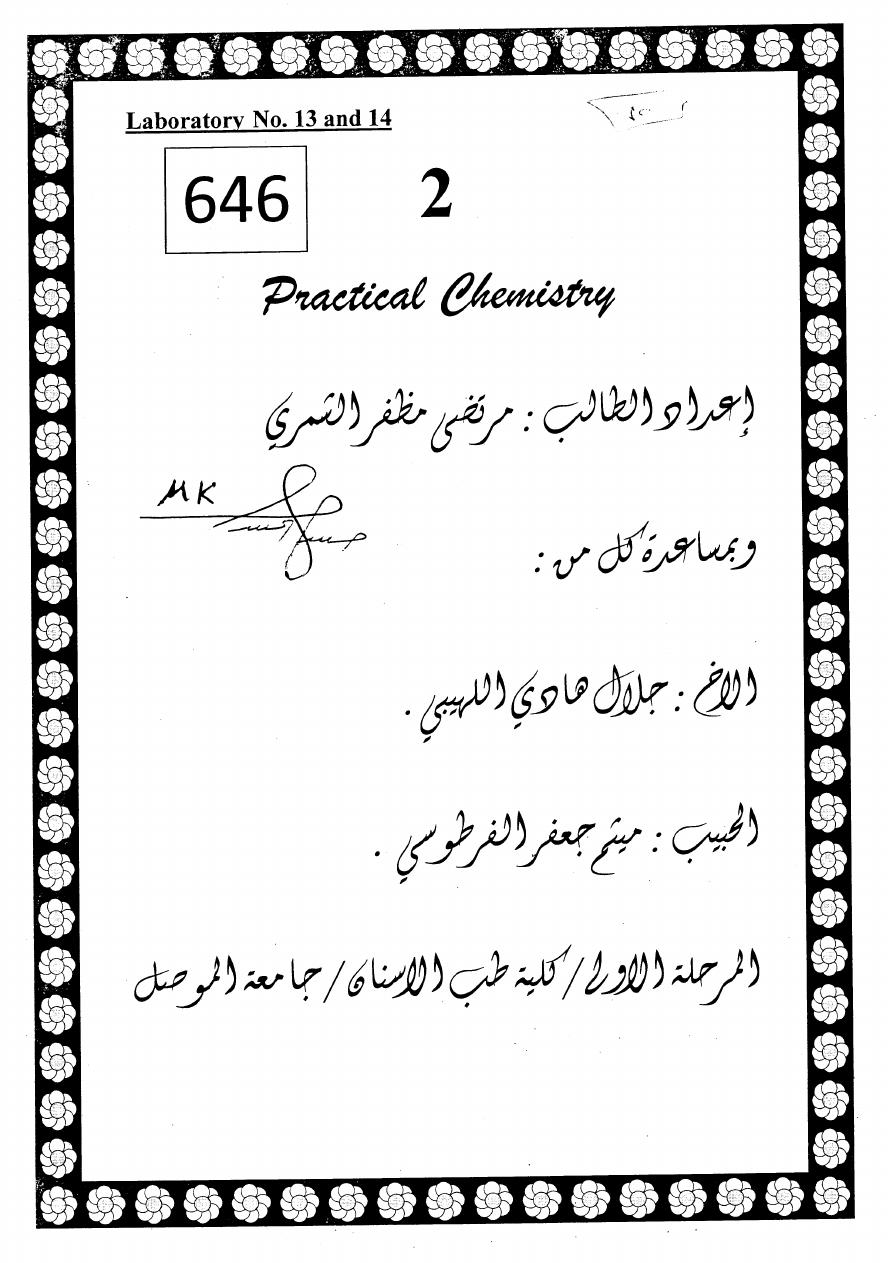 Laboratory No. 13 and 14
646
2
Practical Chemistry
إعداد الطالب : مرتضى مظفر الشمري
MK
وبمساعدة كل من :
الاخ : جلال هادي اللهيبي .
الحبيب : ميثم جعفر الفرطوسي .
المرحلة الاولى / كلية طب الاسنان / جامعة الموصل